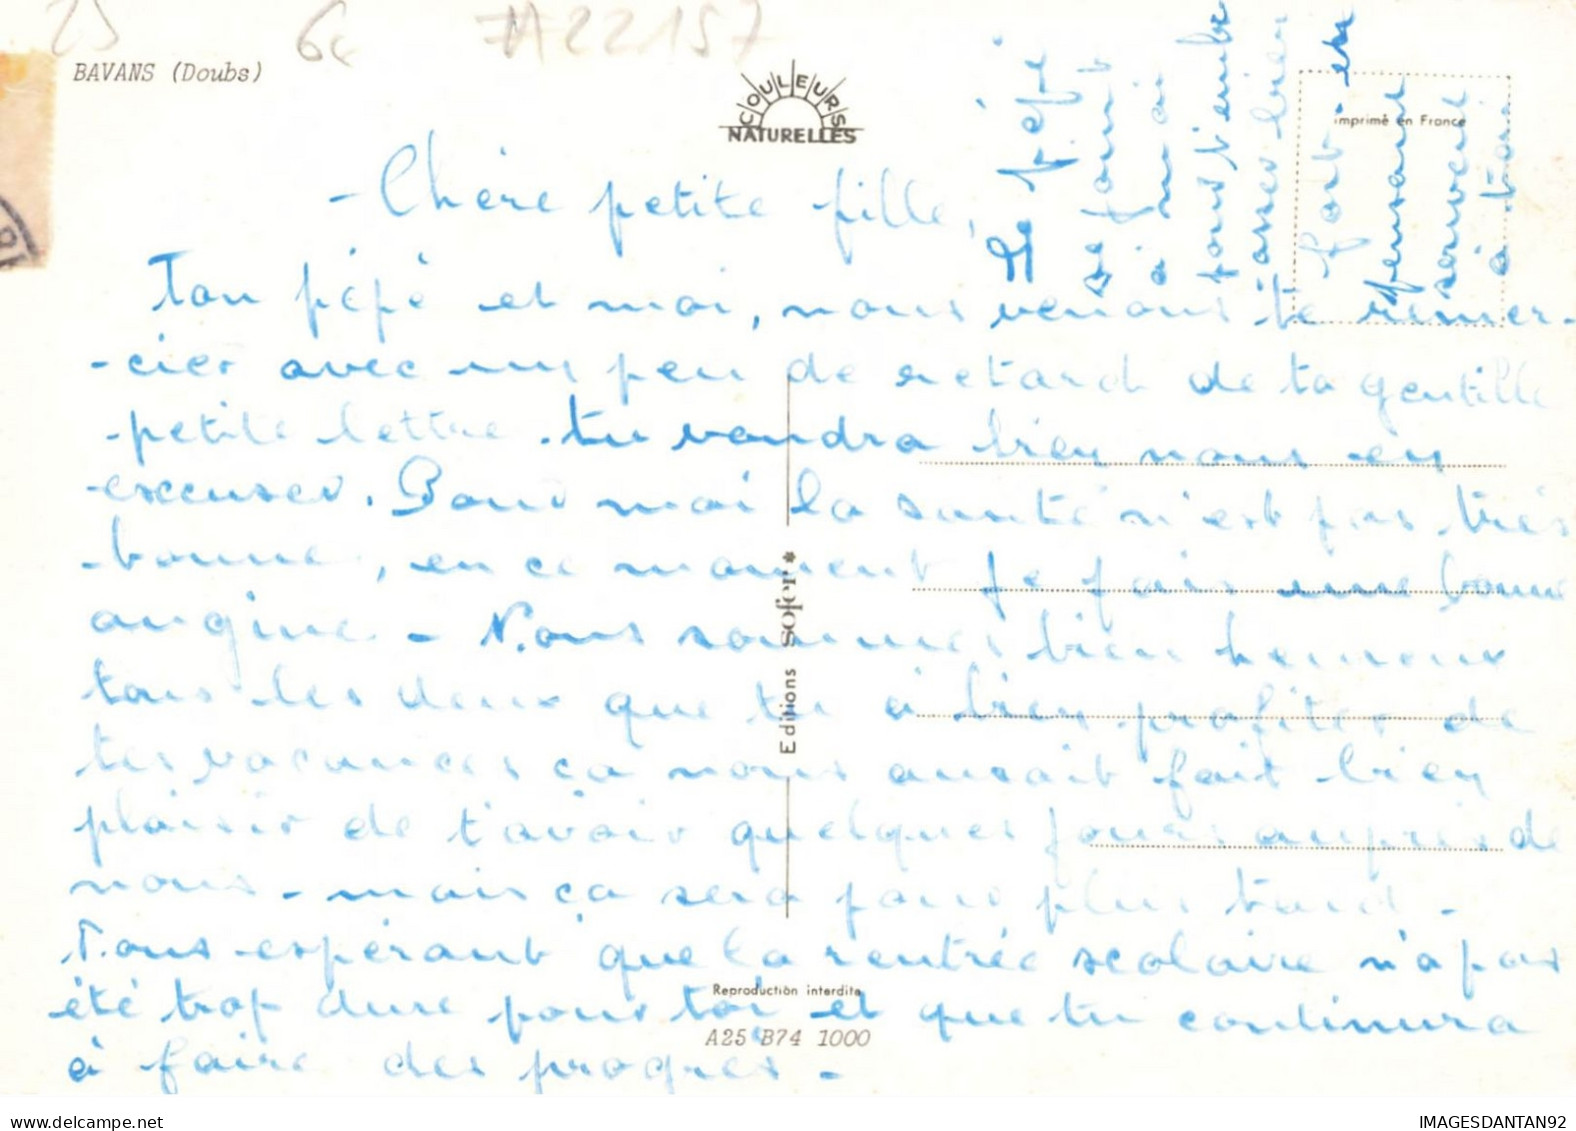 25
6€
#A22157
BAVANS (Doubs)
COULEURS
NATURELLES
Imprimé en France
- Chère petite fille,
Ton pépé et moi, nous venons te remer-
-cier avec un peu de retard de ta gentille
petite lettre. tu voudra bien nous en
excuser. Pour moi la santé n'est pas très
bonne, en ce moment je fais une bonne
angine - Nous sommes bien heureux
tous les deux que tu à bien profiter de
tes vacances ça nous aurait fait bien
plaisir de t'avoir quelques jours auprès de
nous - mais ça sera pour plus tard -
Nous espérant que la rentrée scolaire n'a pas
été trop dure pour toi et que tu continura
à faire des progres -
pépé
se joint
à moi
pour t'embr
asser bien
fort en
pensant
souvent
à toi
Editions sofer *
Reproduction interdite
A25 B74 1000
delcampe.net
IMAGESDANTAN92